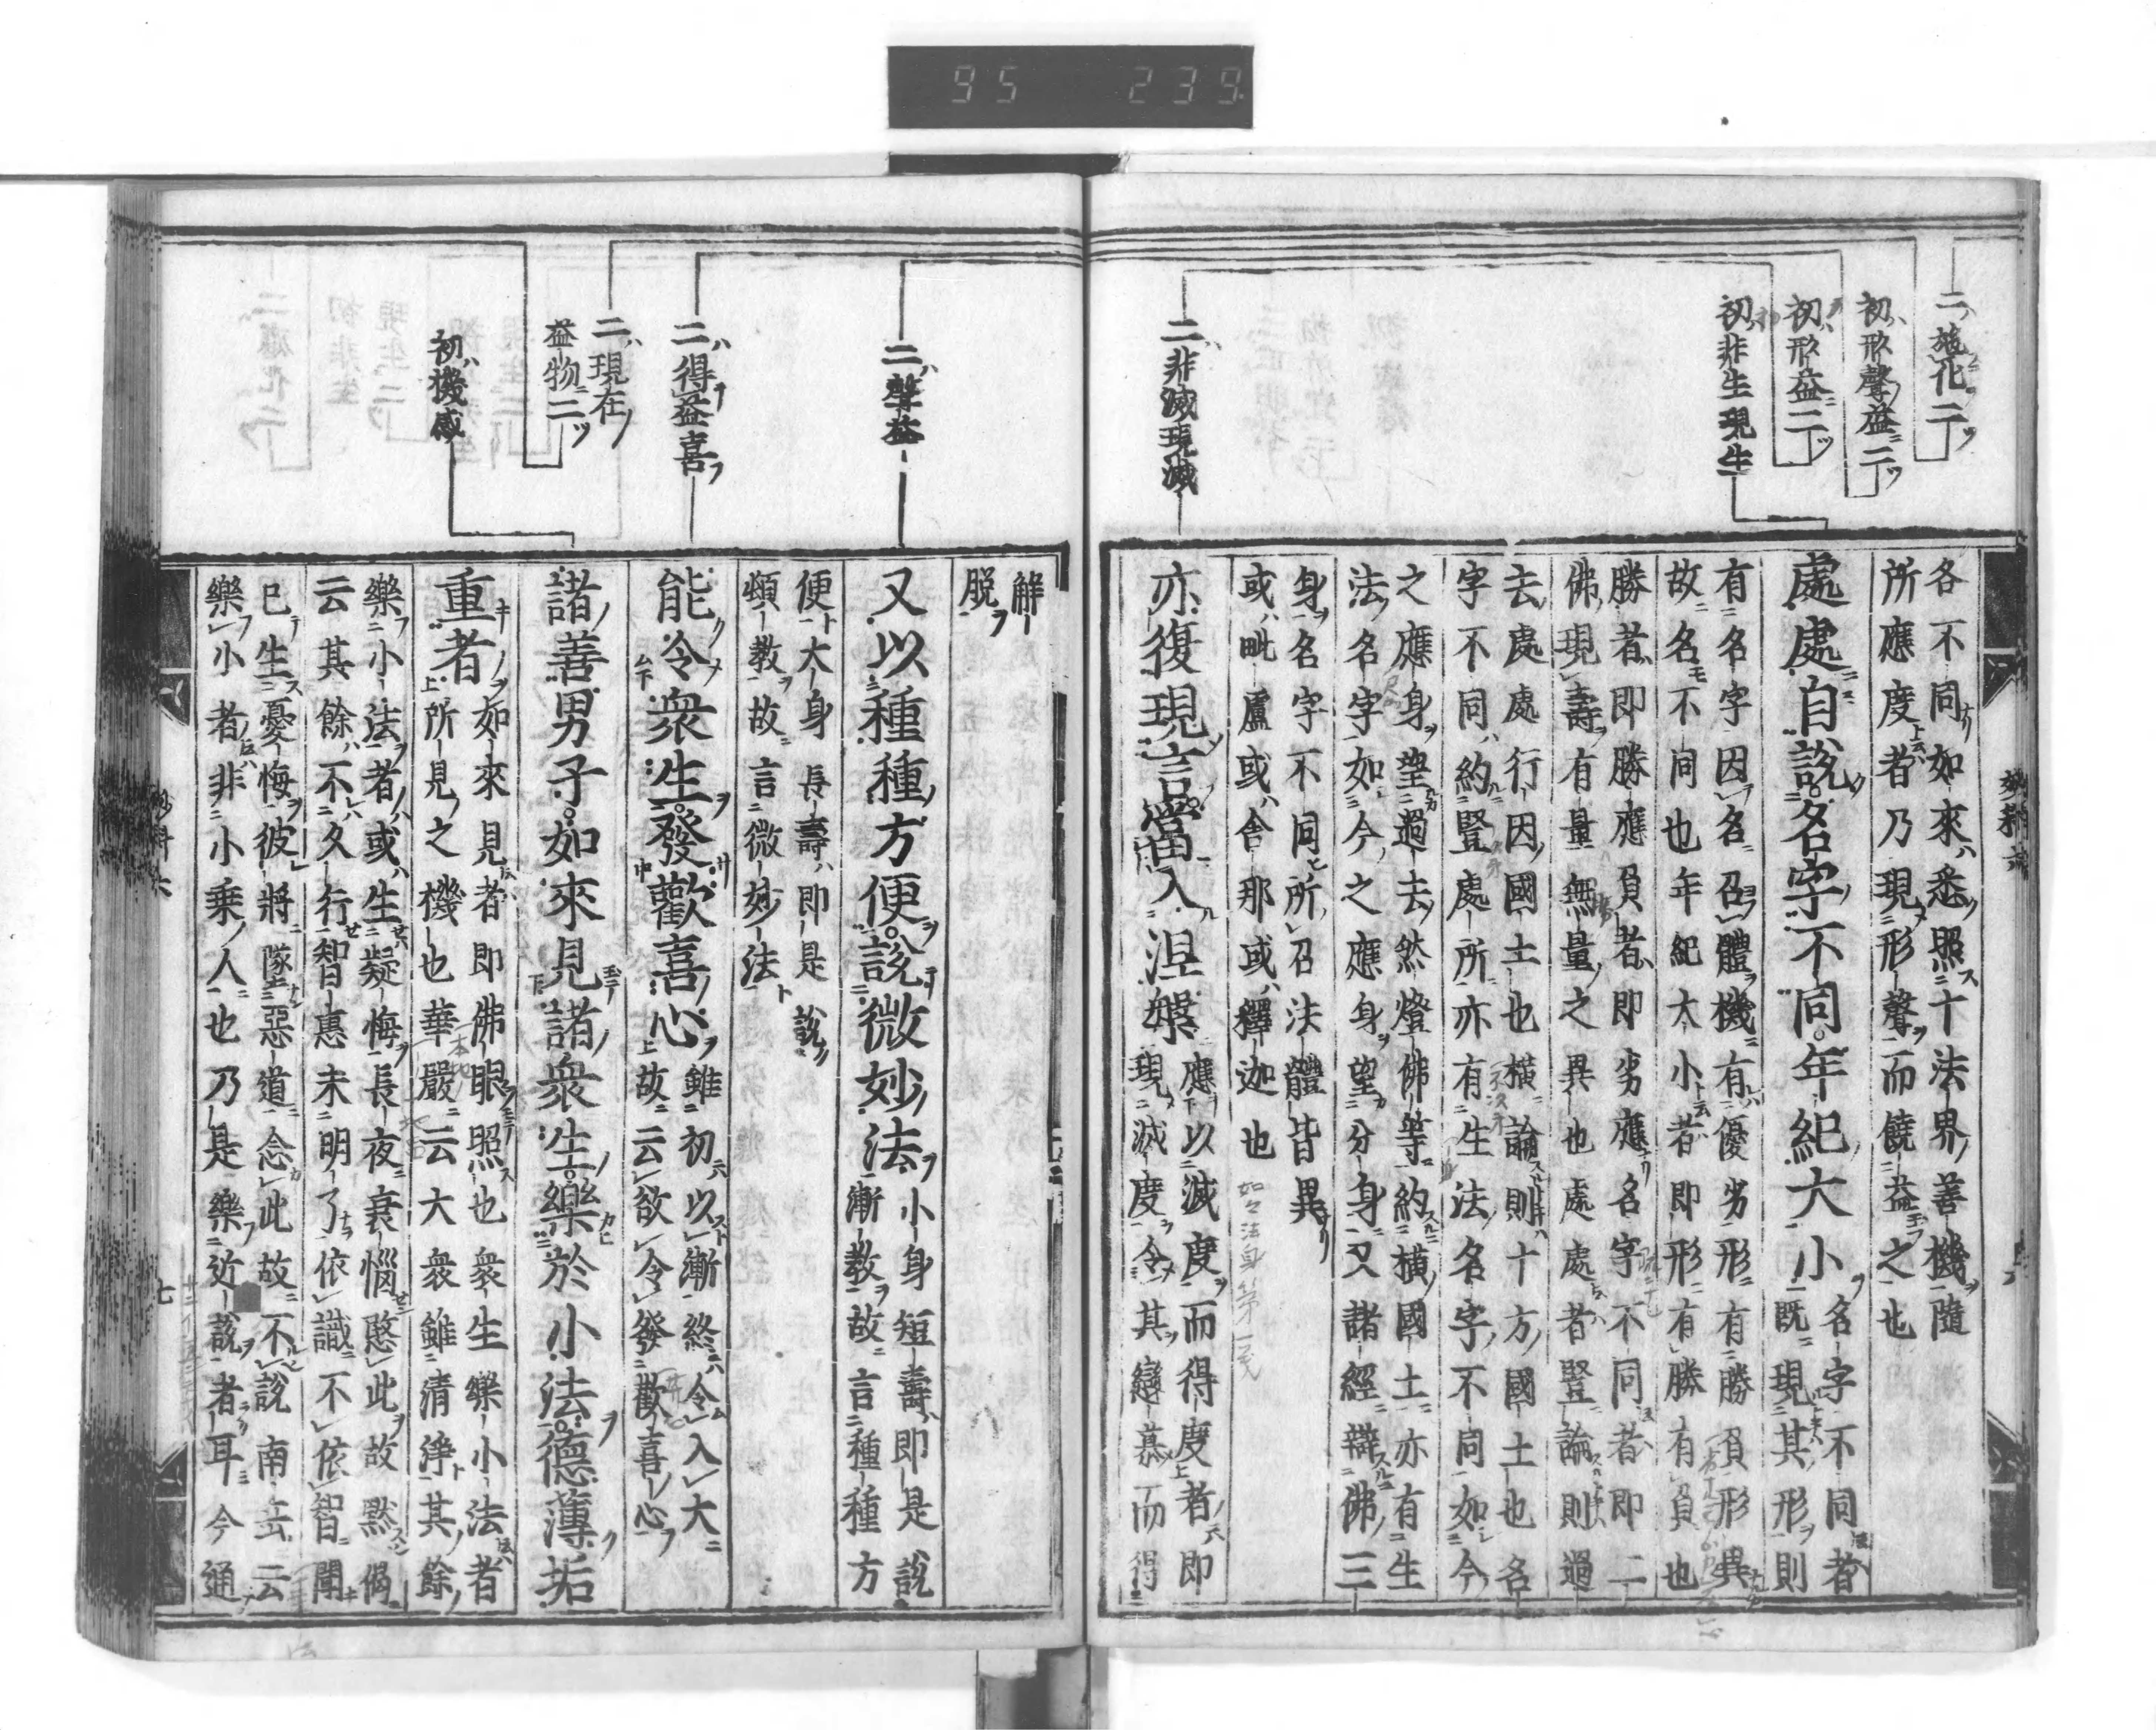 95 239
二施化二
初形聲益二
初形益二
初非生現生
二非滅現滅
各不同如來悉照十法界善機隨
所應度者乃現形聲而饒益之也
處處自說名字不同年紀大小
名字不同者
既現其形則
有名字因名召體機有優劣形有勝負形異
故名不同也年紀大小者即形有勝有負也
勝者即勝應負者即劣應名字不同者即二
佛現壽有量無量之異也處處者豎論則過
去處處行因國土也橫論則十方國土也名
字不同約豎處所亦有生法名字不同如今
之應身望過去然燈佛等約橫國土亦有生
法名字如今之應身望分身又諸經辯佛三
身名字不同所召法體皆異
或毗盧或舍那或釋迦也
亦復現言當入涅槃
應以滅度而得度者即
現滅度令其戀慕而得
二聲益
二得益喜
二現在
益物二
初機感
解
脱
又以種種方便說微妙法
小身短壽即是說
漸教故言種種方
便大身長壽即是說
頓教故言微妙法
能令衆生發歡喜心
雖初以漸終令入大
故云欲令發歡喜心
諸善男子如來見諸衆生樂於小法德薄垢
重者
如來見者即佛眼照也衆生樂小法者
所見之機也華嚴云大衆雖清淨其餘
樂小法者或生疑悔長夜衰惱愍此故默偈
云其餘不久行智惠未明了依識不依智聞
已生憂悔彼將墜惡道念此故不說南岳云
樂小者非小乗人也乃是樂近說者耳今通
妙科六
七